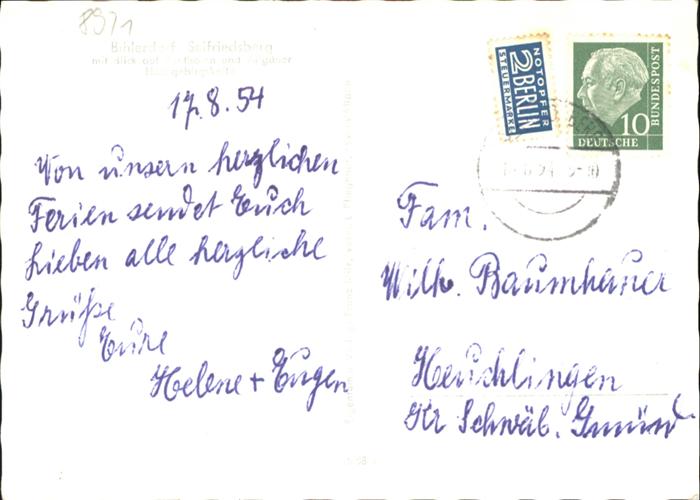 8971
Bihlerdorf - Seifriedsberg
mit Blick auf
17.8.54
Von unsern herzlichen
Ferien sendet Euch
Lieben alle herzliche
Grüße
Eure
Helene + Eugen
NOTOPFER
2 BERLIN
STEUERMARKE
10
DEUTSCHE
BUNDESPOST
Fam.
Wilh. Baumhauer
Heuchlingen
Kr Schwäb. Gmünd